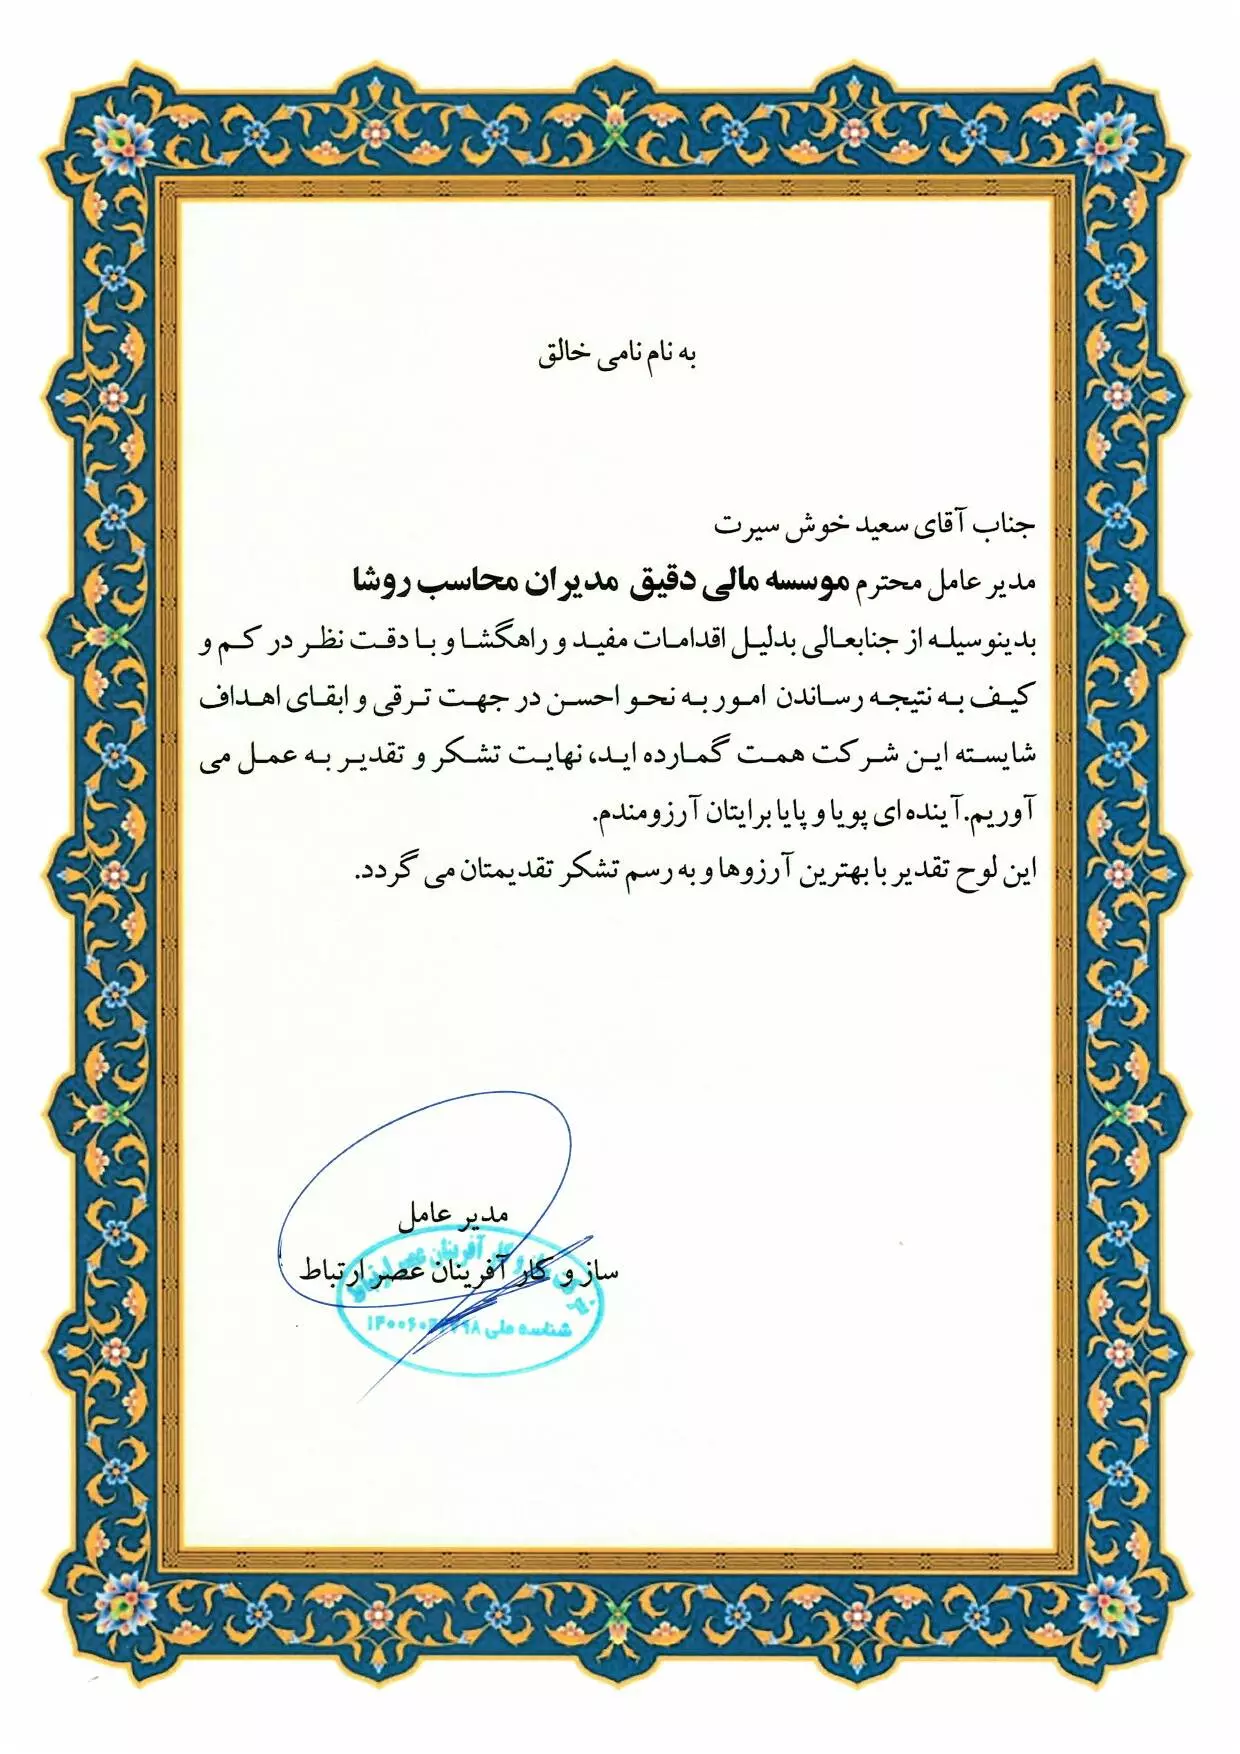 به نام نامی خالق
جناب آقای سعید خوش سیرت
مدیر عامل محترم موسسه مالی دقیق مدیران محاسب روشا
بدینوسیله از جنابعالی بدلیل اقدامات مفید و راهگشا و با دقت نظر در کم و
کیف به نتیجه رساندن امور به نحو احسن در جهت ترقی و ابقای اهداف
شایسته این شرکت همت گمارده اید، نهایت تشکر و تقدیر به عمل می
آوریم.آینده ای پویا و پایا برایتان آرزومندم.
این لوح تقدیر با بهترین آرزوها و به رسم تشکر تقدیمتان می گردد.
مدیر عامل
ساز و کار آفرینان عصر ارتباط
کار آفرینان عصر ارتباط
شناسه ملی